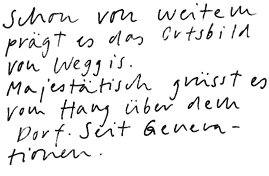 Schon von weitem
prägt es das Ortsbild
von Weggis.
Majestätisch grüsst es
vom Hang über dem
Dorf. Seit Genera-
tionen.